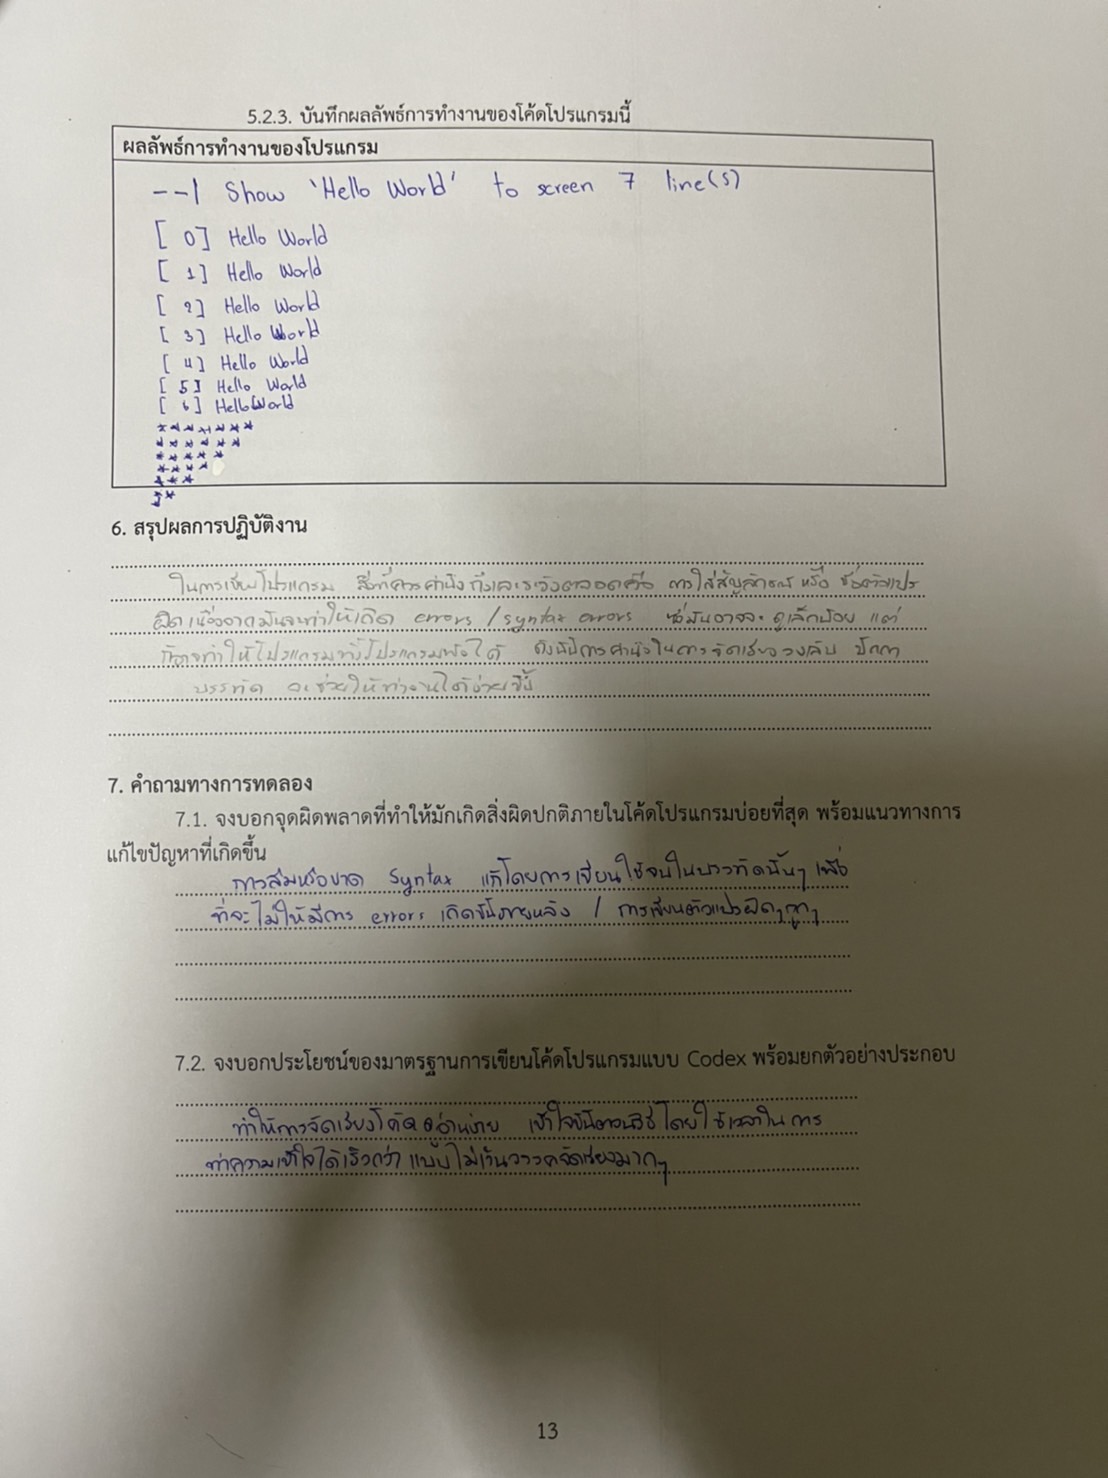 5.2.3. บันทึกผลลัพธ์การทำงานของโค้ดโปรแกรมนี้
ผลลัพธ์การทำงานของโปรแกรม
--| Show 'Hello World' to screen 7 line(s)
[ 0] Hello World
[ 1] Hello World
[ 2] Hello World
[ 3] Hello World
[ 4] Hello World
[ 5] Hello World
[ 6] Hello World
*******
******
*****
****
***
**
*
6. สรุปผลการปฏิบัติงาน
ในการเขียนโปรแกรม สิ่งที่ควรคำนึงถึงและระวังตลอดคือ การใส่สัญลักษณ์ หรือ ชื่อตัวแปร
ผิด เนื่องจากมันจะทำให้เกิด errors / syntax errors ซึ่งมันอาจจะดูเล็กน้อย แต่
ก็อาจทำให้โปรแกรมทั้งโปรแกรมพังได้ ดังนั้นการคำนึงในการจัดเรียง วงเล็บ ปีกกา
บรรทัด จะช่วยให้ทำงานได้ง่ายขึ้น
7. คำถามทางการทดลอง
7.1. จงบอกจุดผิดพลาดที่ทำให้มักเกิดสิ่งผิดปกติภายในโค้ดโปรแกรมบ่อยที่สุด พร้อมแนวทางการ
แก้ไขปัญหาที่เกิดขึ้น
การลืมหรือขาด Syntax แก้โดยการเขียนให้จบในบรรทัดนั้นๆ เพื่อ
ที่จะไม่ให้มีการ errors เกิดขึ้นภายหลัง / การเขียนตัวแปรผิดๆถูกๆ
7.2. จงบอกประโยชน์ของมาตรฐานการเขียนโค้ดโปรแกรมแบบ Codex พร้อมยกตัวอย่างประกอบ
ทำให้การจัดเรียงโค้ดดูอ่านง่าย เข้าใจขั้นตอนวิธี โดยใช้เวลาในการ
ทำความเข้าใจได้เร็วกว่า แบบไม่เว้นวรรคจัดเรียงมากๆ
13